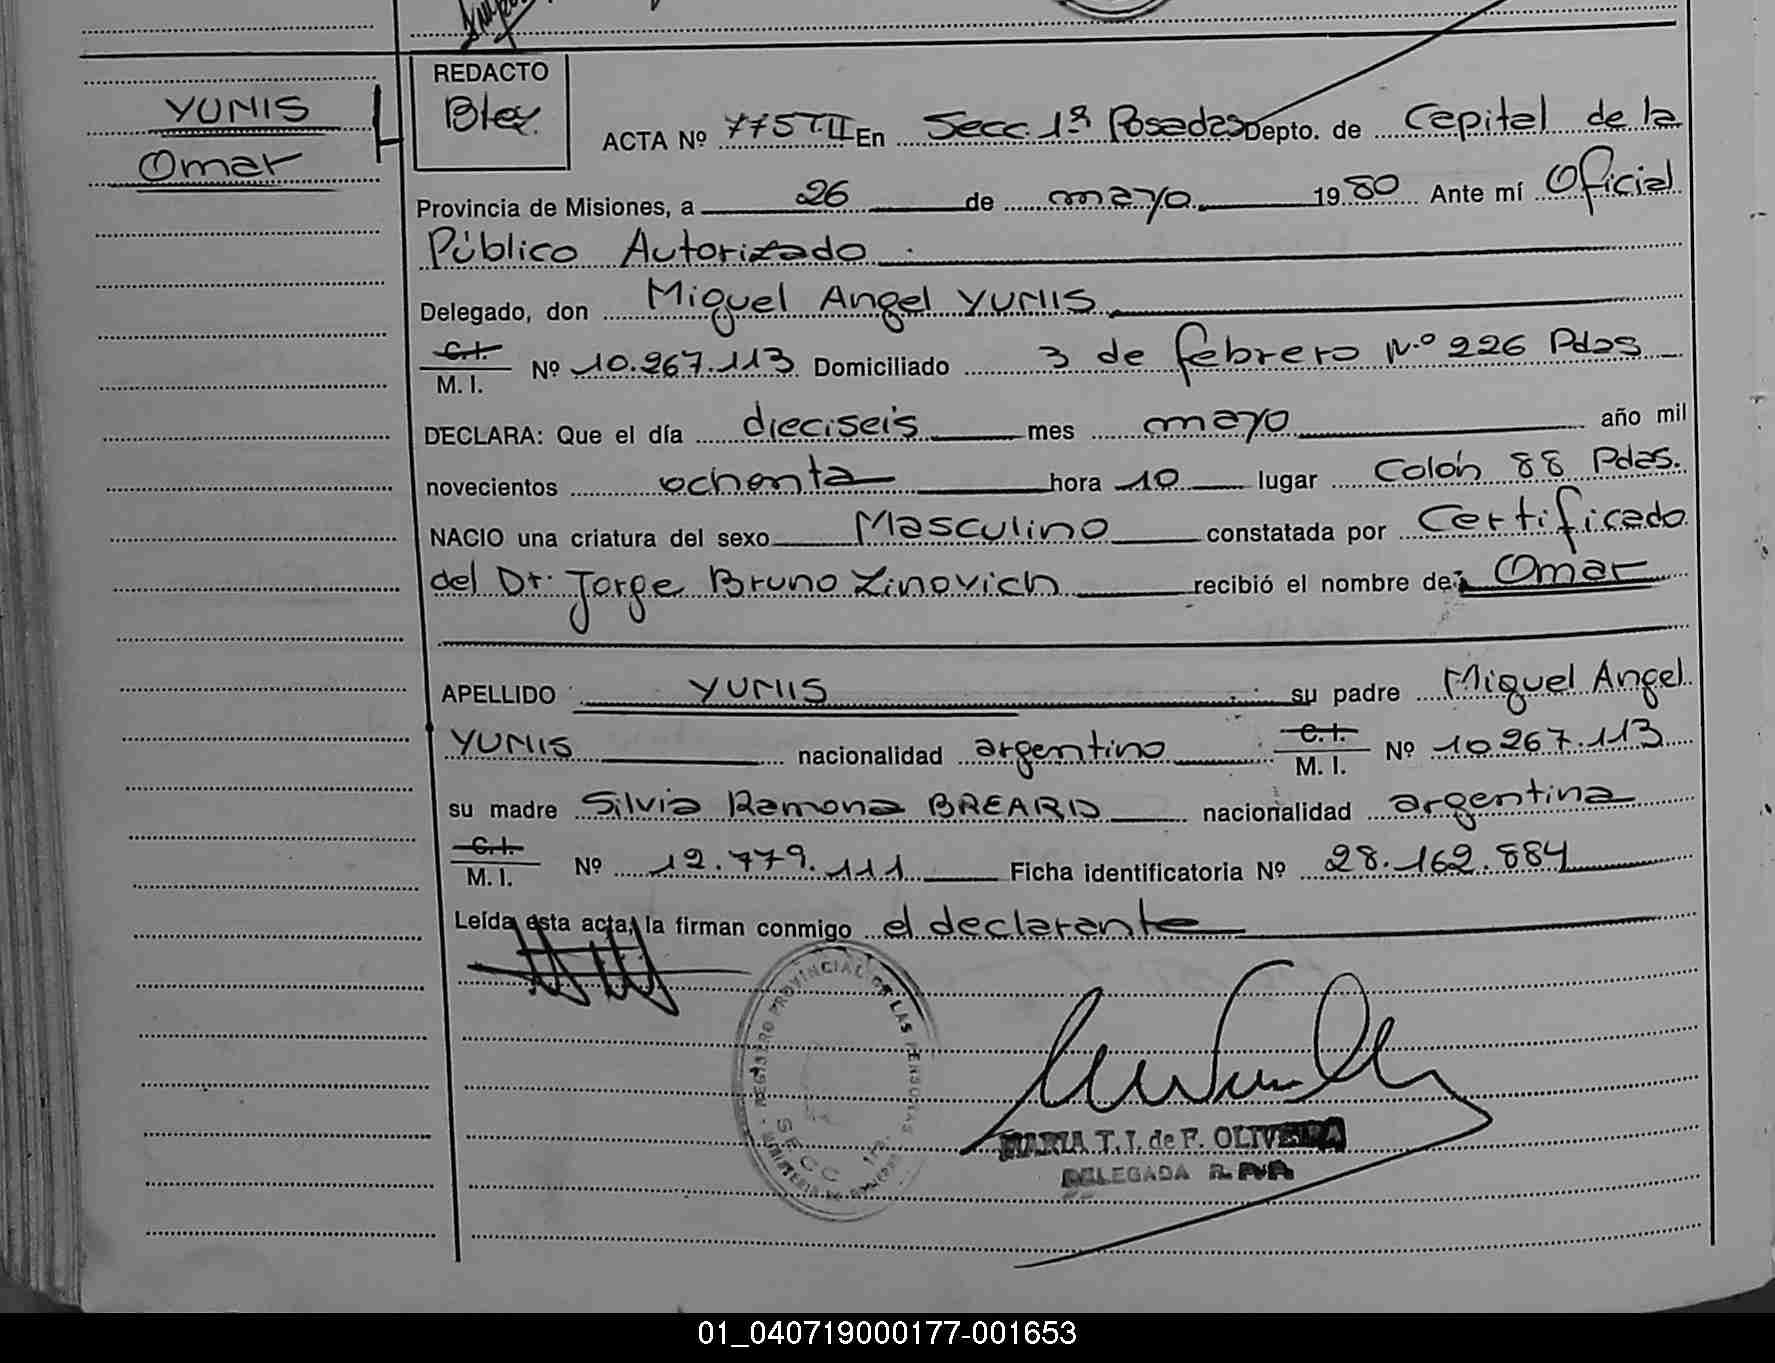 REDACTO
YUNIS
Omar
ACTA Nº 775 T.II En Secc. 1ª Posadas Depto. de Capital de la
Provincia de Misiones, a 26 de mayo 1980 Ante mí Oficial
Público Autorizado
Delegado, don Miguel Angel YUNIS
C.I.
M. I. Nº 10.267.113 Domiciliado 3 de febrero N.º 226 Pdas
DECLARA: Que el día dieciseis mes mayo año mil
novecientos ochenta hora 10 lugar Colón 88 Pdas.
NACIO una criatura del sexo Masculino constatada por Certificado
del Dr. Jorge Bruno Zinovich recibió el nombre de: Omar
APELLIDO YUNIS su padre Miguel Angel
YUNIS nacionalidad argentino C.I. M. I. Nº 10.267.113
su madre Silvia Ramona BREARD nacionalidad argentina
C.I.
M. I. Nº 12.779.111 Ficha identificatoria Nº 28.162.884
Leída esta acta, la firman conmigo el declarante
REGISTRO PROVINCIAL DE LAS PERSONAS
SECC 1ra.
MARIA T. I. de F. OLIVEIRA
DELEGADA R. P. P.
01_040719000177-001653